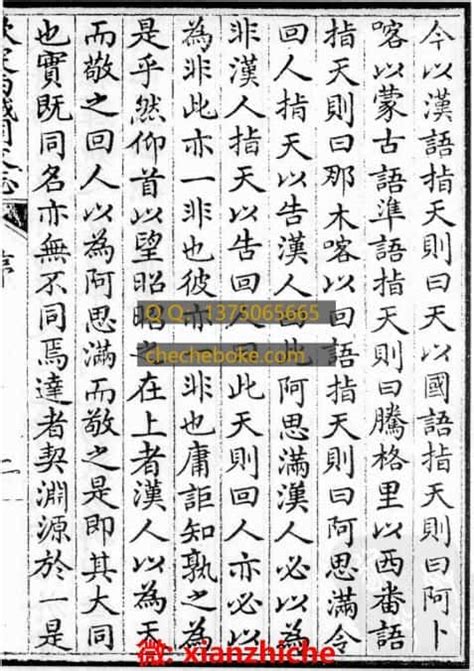 今以漢語指天則曰天以國語指天則曰阿卜
喀以蒙古語準語指天則曰騰格里以西番語
指天則曰那木喀以回語指天則曰阿思滿令
回人指天以告漢人曰此阿思滿漢人必以為
非漢人指天以告回人曰此天則回人亦必以
為非此亦一非也彼亦一非也庸詎知孰之為
是乎然仰首以望昭昭之在上者漢人以為天
而敬之回人以為阿思滿而敬之是即其大同
也實既同名亦無不同焉達者契淵源於一是
序
二
QQ: 1375065665
checheboke.com
微: xianzhiche